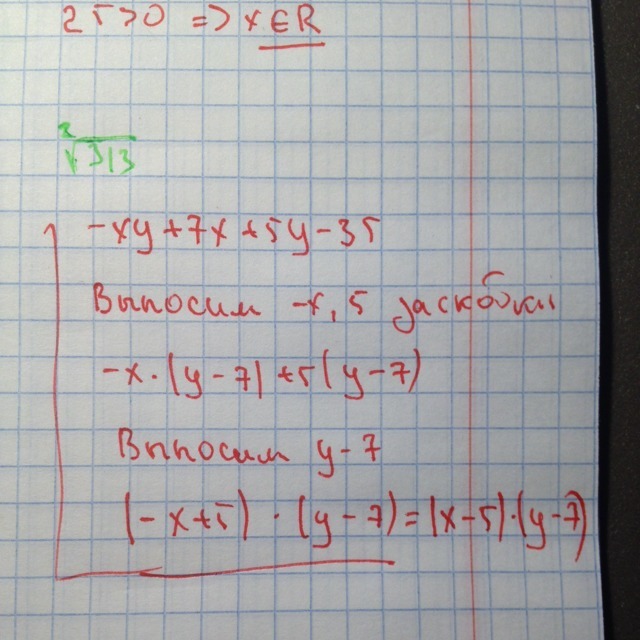 25>0 => x ∈ R
√313
-xy+7x+5y-35
Выносим -x, 5 за скобки
-x·(y-7)+5(y-7)
Выносим y-7
(-x+5)·(y-7)=(x-5)·(y-7)